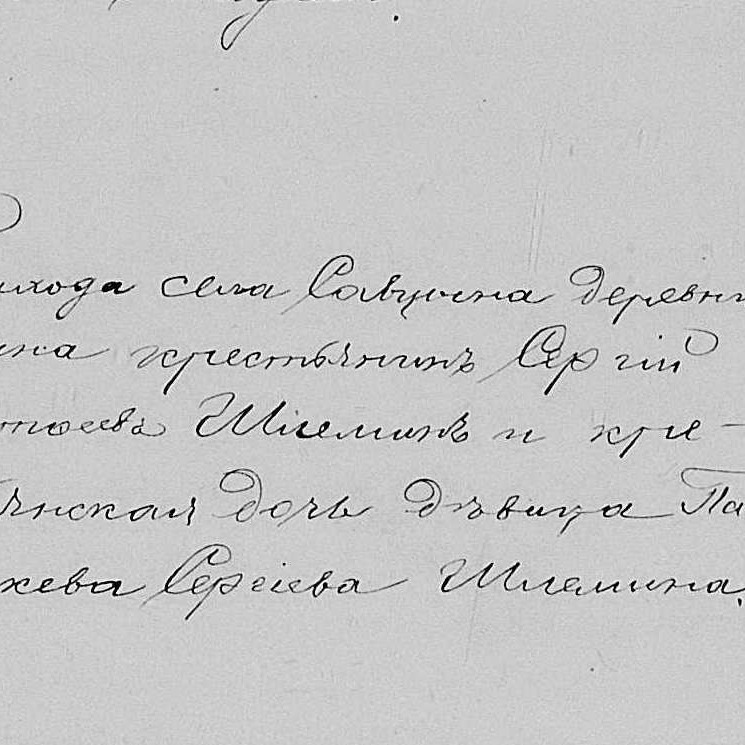 ихода села Савцына деревн
ина крестьянинъ Сергій
Шлеминъ и кре-
янская дочь дѣвица Па
кева Сергіева Шлемина.